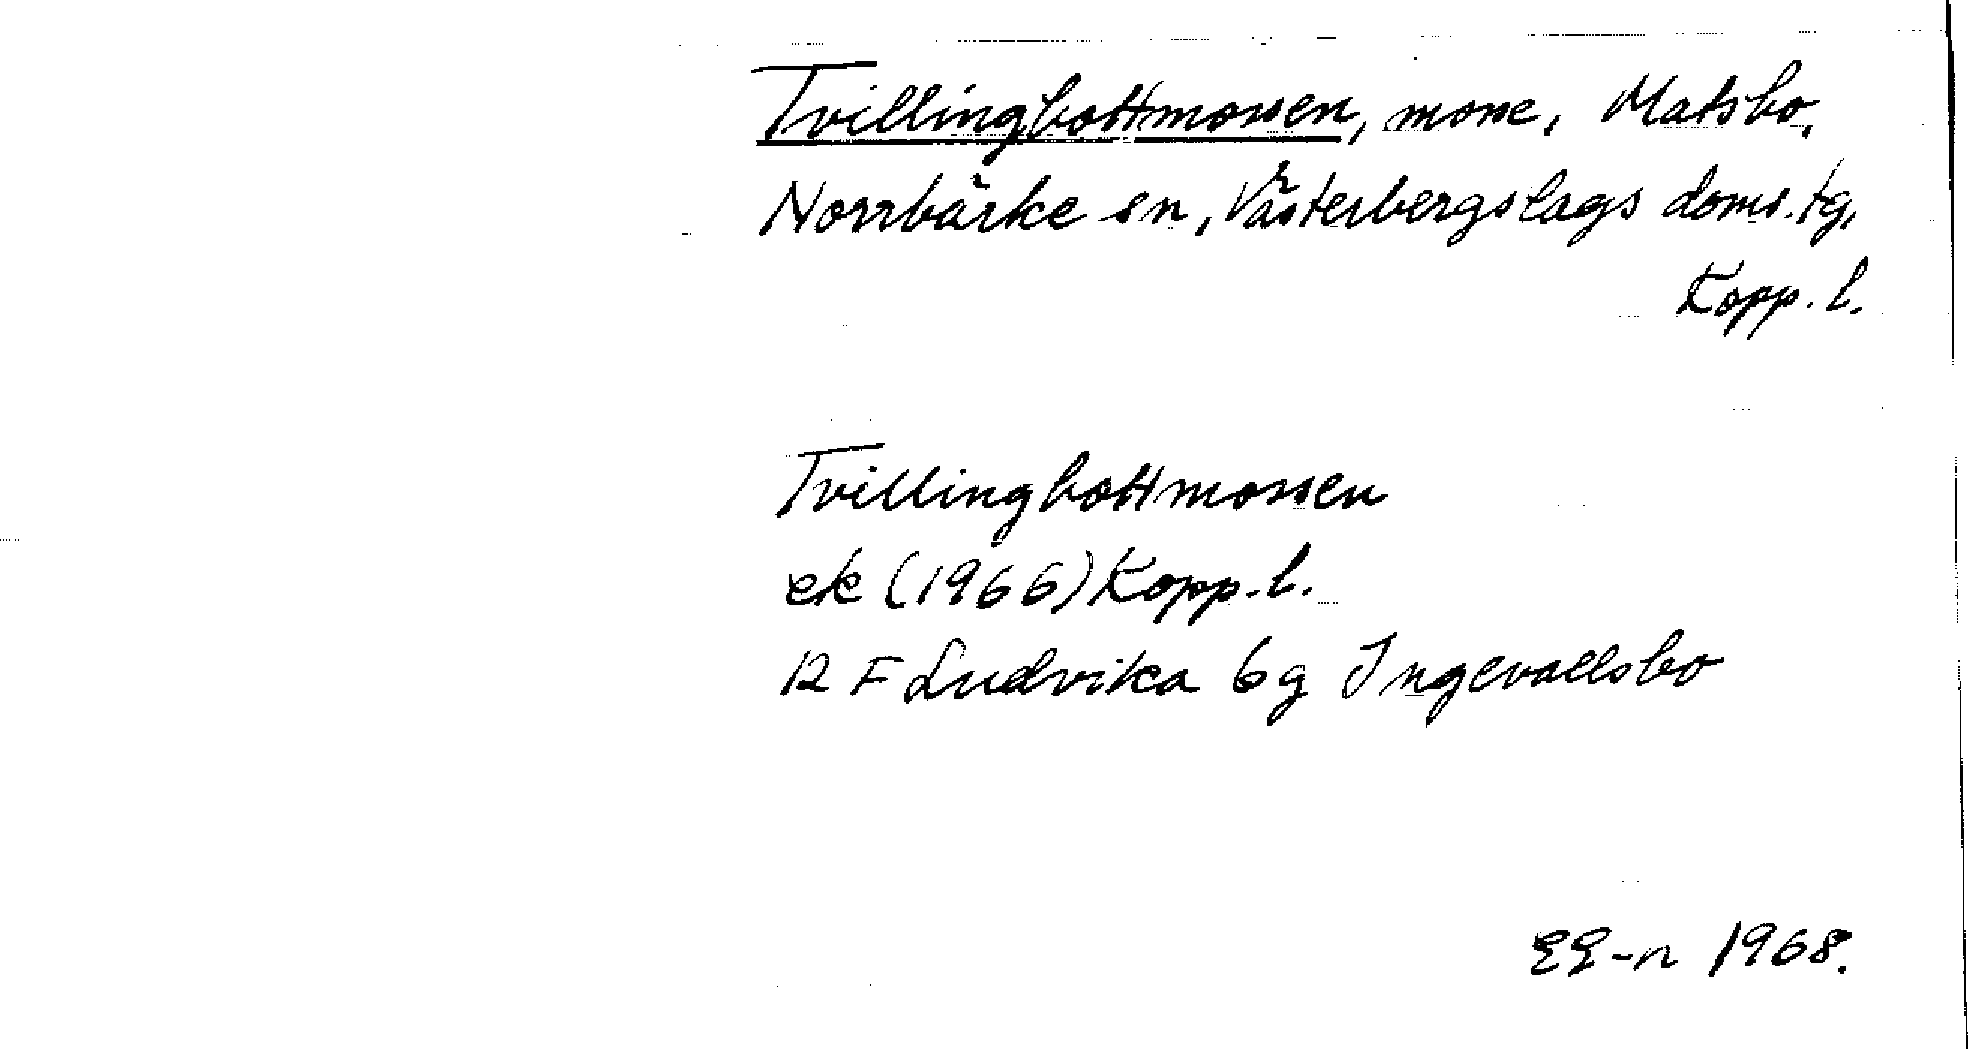 Tvillingbottmossen, mosse, Matsbo,
Norrbärke sn, Västerbergslags doms. tg,
Kopp. l.
Tvillingbottmossen
ek (1966) Kopp. l.
12 F Ludvika 6g Ingevallsbo
EE-n 1968.